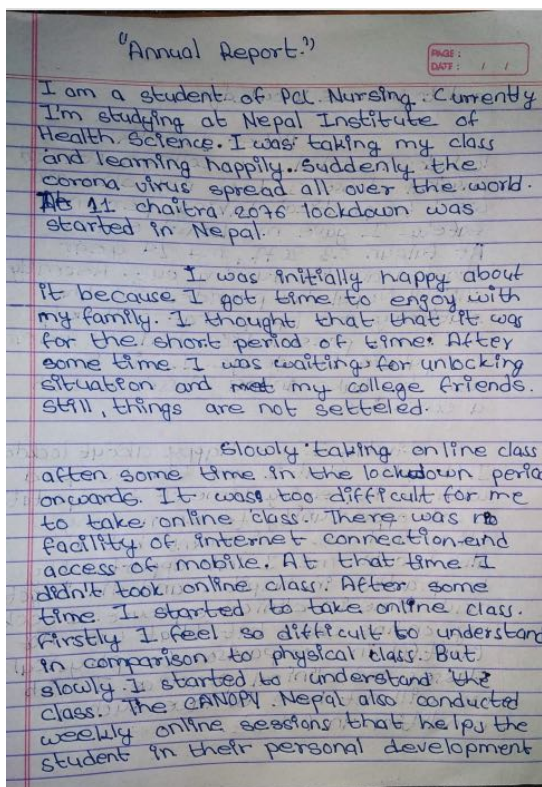 "Annual Report."
PAGE :
DATE : / /
I am a student of PCL Nursing. Currently
I'm studying at Nepal Institute of
Health Science. I was taking my class
and learning happily. Suddenly the
corona virus spread all over the world.
At 11 chaitra 2076 lockdown was
started in Nepal.
I was initially happy about
it because I got time to enjoy with
my family. I thought that that it was
for the short period of time. After
some time I was waiting for unlocking
situation and met my college friends.
still, things are not setteled.
Slowly taking online class
after some time in the lockdown perio
onwards. It was too difficult for me
to take online class. There was no
facility of internet connection and
access of mobile. At that time I
didn't took online class. After some
time I started to take online class.
Firstly I feel so difficult to understand
in comparison to physical class. But
slowly I started to understand the
class. The CANOPY Nepal also conducted
weekly online sessions that helps the
student in their personal development